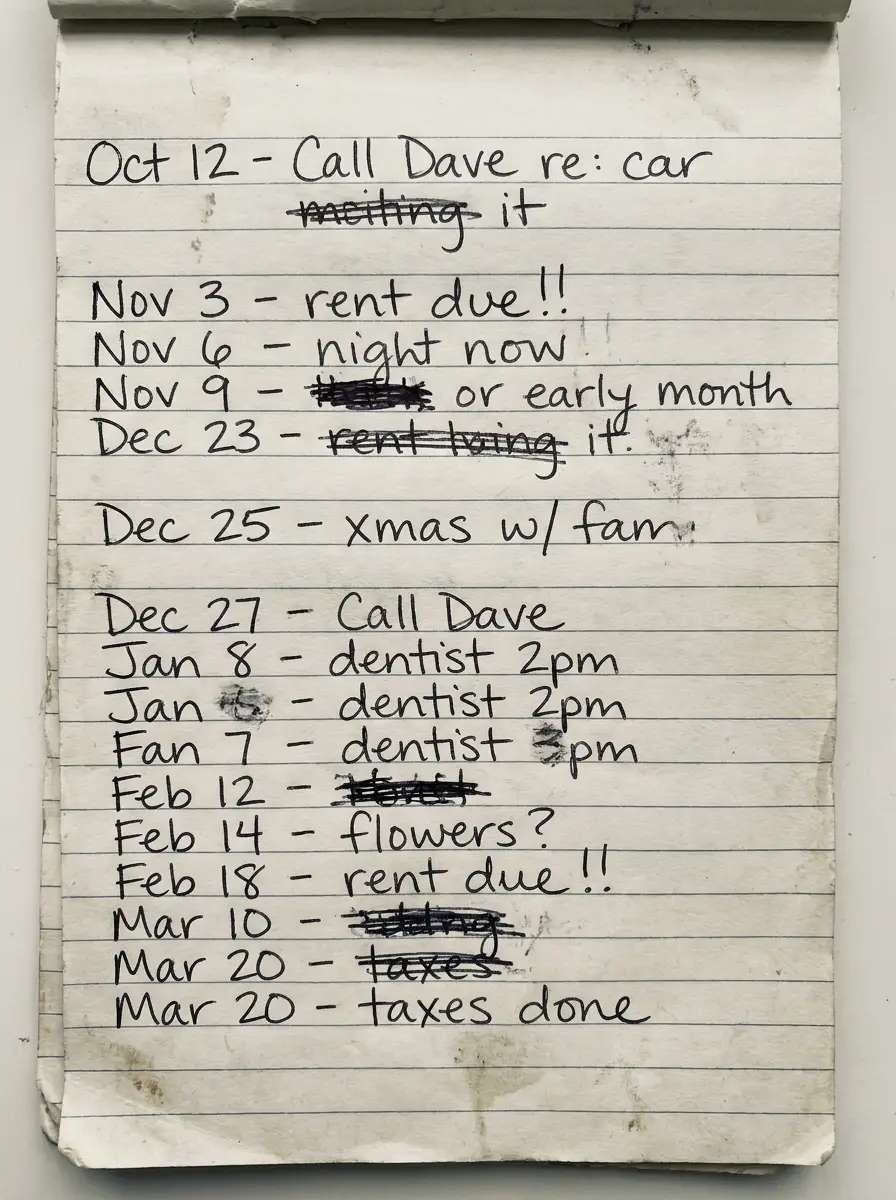 Oct 12 - Call Dave re: car
it
Nov 3 - rent due!!
Nov 6 - night now
Nov 9 - or early month
Dec 23 - rent it.
Dec 25 - xmas w/ fam
Dec 27 - Call Dave
Jan 8 - dentist 2pm
Jan - dentist 2pm
Fan 7 - dentist pm
Feb 12 -
Feb 14 - flowers?
Feb 18 - rent due!!
Mar 10 -
Mar 20 - taxes
Mar 20 - taxes done